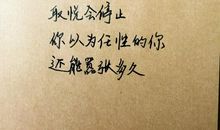 取悦会停止
你以为任性的你
还能嚣张多久